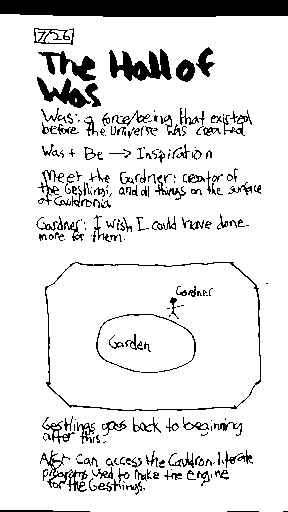 7/26
The Hall of
Was
Was: a force/being that existed
before the universe was created
Was + Be → Inspiration
Meet the Gardner: creator of
the Gestlings, and all things on the surface
of Cauldronia
Gardner: I wish I could have done
more for them.
Gardner
Garden
Gestlings goes back to beginning
after this.
can access the Cauldron.
programs used to make the engine
for the Gestlings.